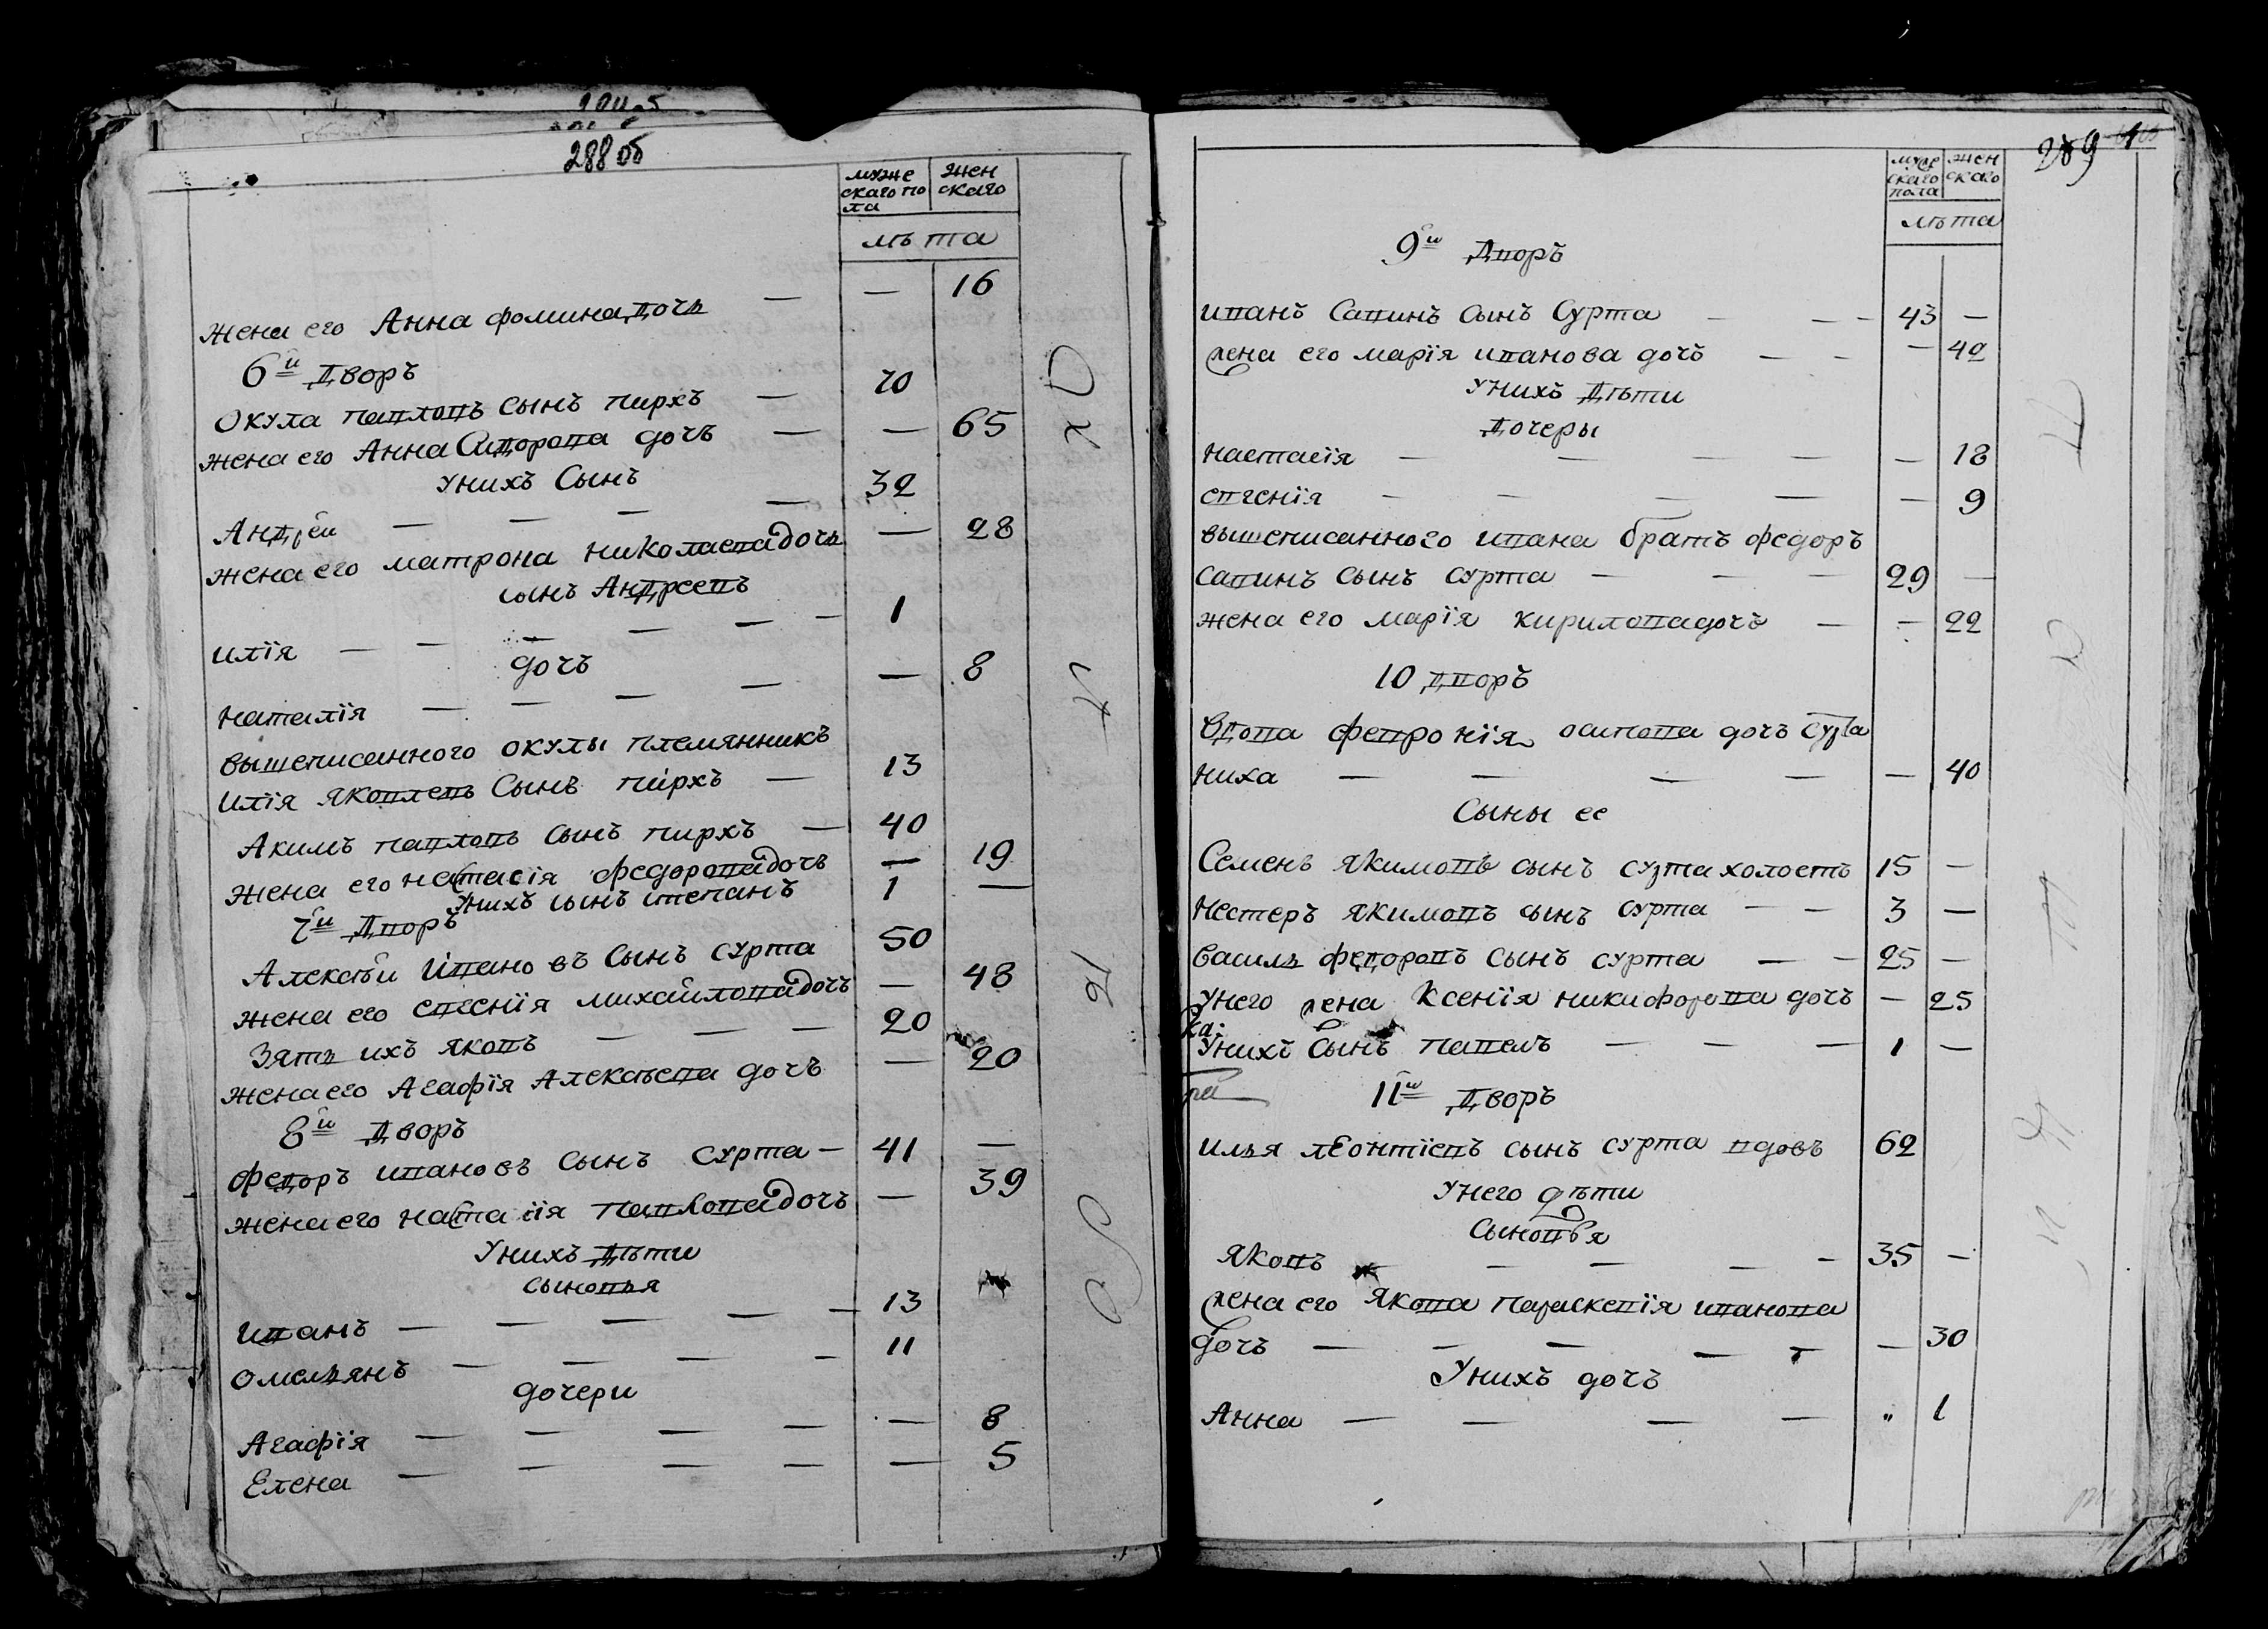 288 об
муже
скаго по
ла
жен
скаго
лѣта
жена его Анна фомина дочь — — 16
6й Дворъ
Окула павловъ сынъ пирхъ — 70
жена его Анна Сидорова дочъ — — 65
Унихъ Сынъ
Андрей — — — — 32
жена его матрона николаева дочь — 28
сынъ Андреевъ
илія — — — — — — 1
дочъ
наталія — — — — — 8
вышеписанного окулы племянникъ
илія яковлевъ Сынъ пирхъ — 13
Акимъ павловъ сынъ пирхъ — 40
жена его настасія федорова дочъ — 19
Унихъ сынъ степанъ 1 —
7й Дворъ
Алексѣй Ивановъ Сынъ сурта 50
жена его евгенія михайлова дочъ — 48
Зять ихъ яковъ — — — 20
жена его Агафія Алексѣева дочъ — 20
8й Дворъ
федоръ ивановъ сынъ сурта — 41 —
жена его настасія павлова дочъ — 39
Унихъ Дѣти
сыновья
иванъ — — — — — 13
омельянъ — — — — 11
дочери
Агафія — — — — — 8
Елена — — — — — 5
289
муже
скаго
пола
жен
скаго
лѣта
9й Дворъ
иванъ Савинъ сынъ Сурта — — — 43 —
жена его марія иванова дочъ — — — 42
унихъ Дѣти
Дочеры
настасія — — — — — 18
евгенія — — — — — 9
вышеписанного ивана братъ федоръ
савинъ сынъ сурта — — — 29 —
жена его марія кирилова дочъ — — 22
10 Дворъ
Вдова февронія осипова дочъ сурта
ниха — — — — — 40
Сыны ее
Семенъ якимовъ сынъ сурта холостъ 15 —
Нестеръ якимовъ сынъ сурта — — 3 —
василь федоровъ сынъ сурта — — 25 —
Унего жена Ксенія никифорова дочъ — 25
Унихъ Сынъ павелъ — — — 1 —
11й Дворъ
илья леонтіевъ сынъ сурта вдовъ 62
Унего дѣти
Сыновья
яковъ — — — — 35 —
жена его Якова параскевія иванова
дочъ — — — — — — 30
Унихъ дочъ
Анна — — — — „ 1